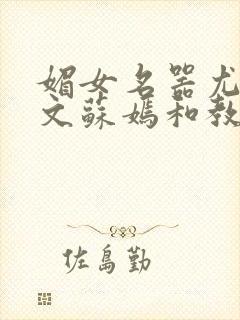 媚女名器尤
文蘇媽和教
佐島勤